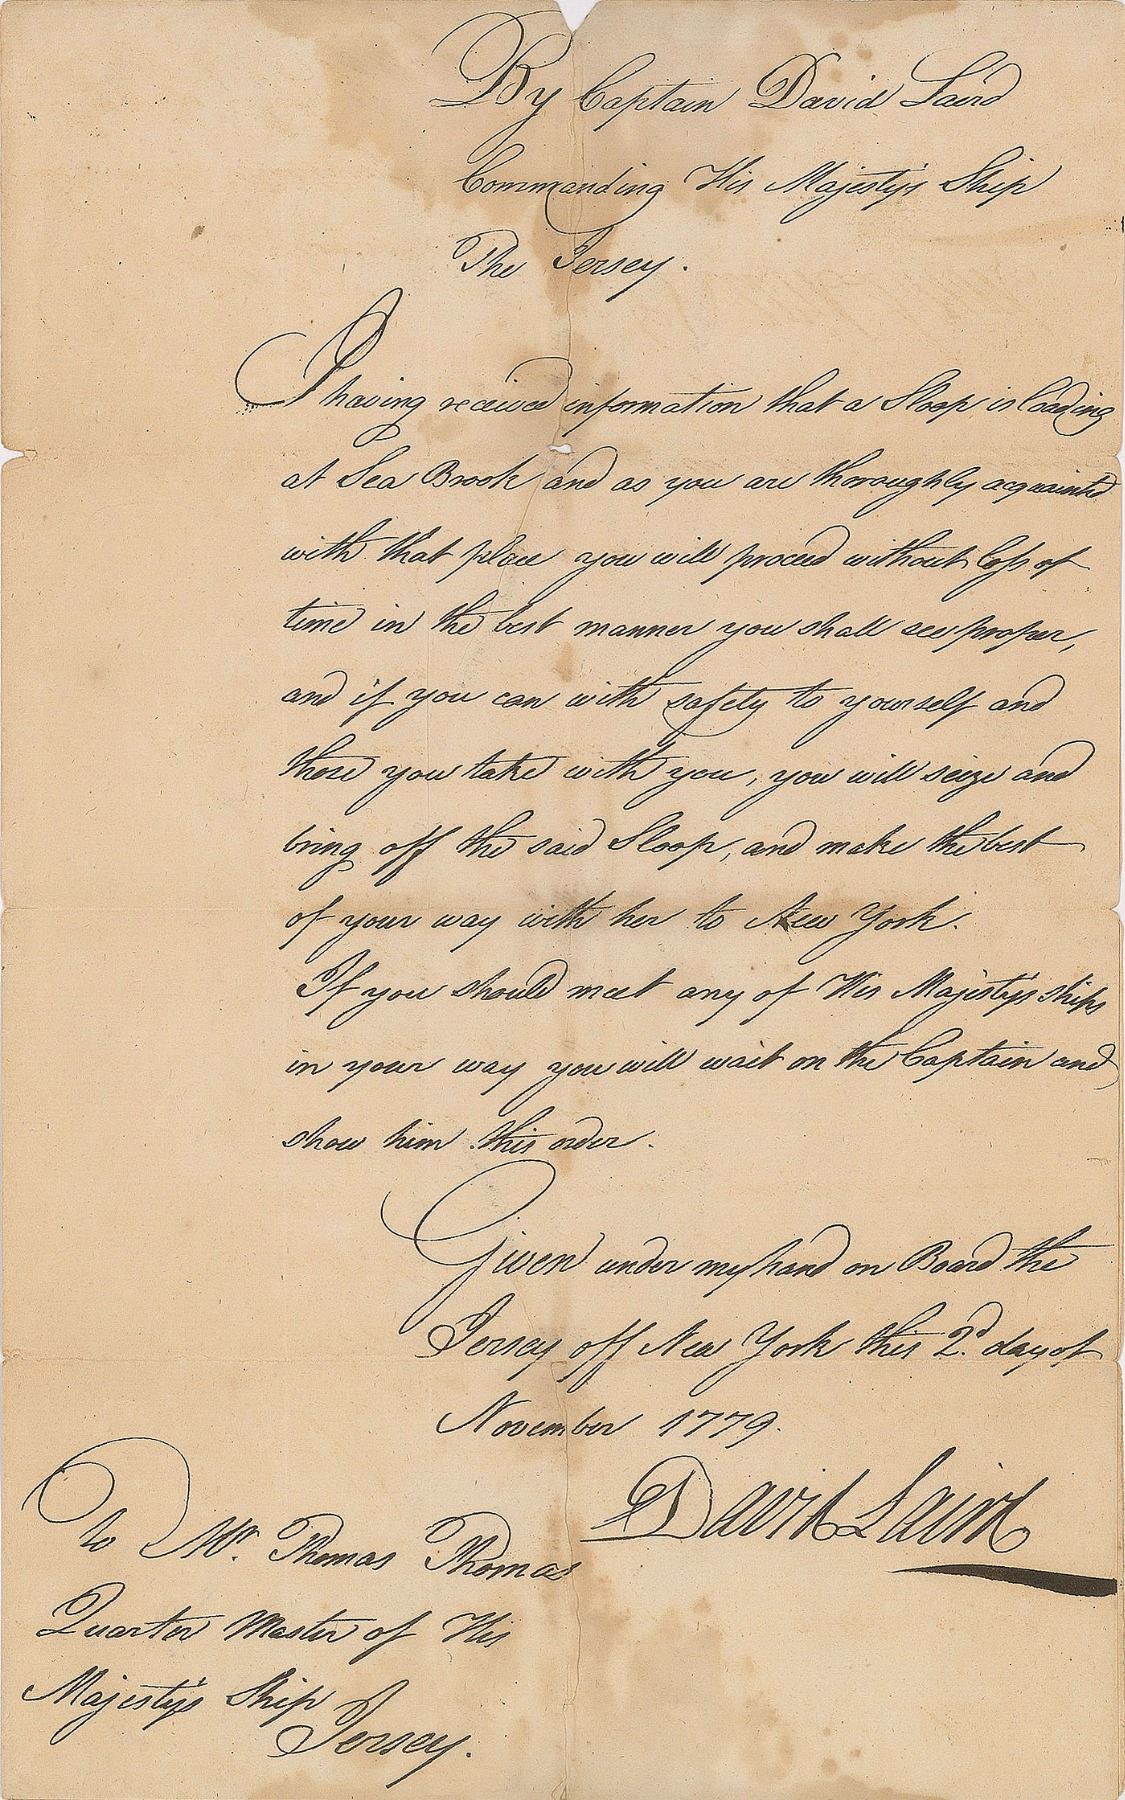 By Captain David Laird
Commanding His Majesty's Ship
The Jersey.
I having received information that a Sloop is loading
at Sea Brook and as you are thoroughly acquainted
with that place you will proceed without loss of
time in the best manner you shall see proper,
and if you can with safety to yourself and
those you take with you, you will seize and
bring off the said Sloop, and make the best
of your way with her to New York.
If you should meet any of His Majesty's ships
in your way you will wait on the Captain and
show him this order.
Given under my hand on Board the
Jersey off New York this 2d. day of
November 1779.
David Laird
To Mr. Thomas Thomas
Quarter Master of His
Majesty's Ship
Jersey.